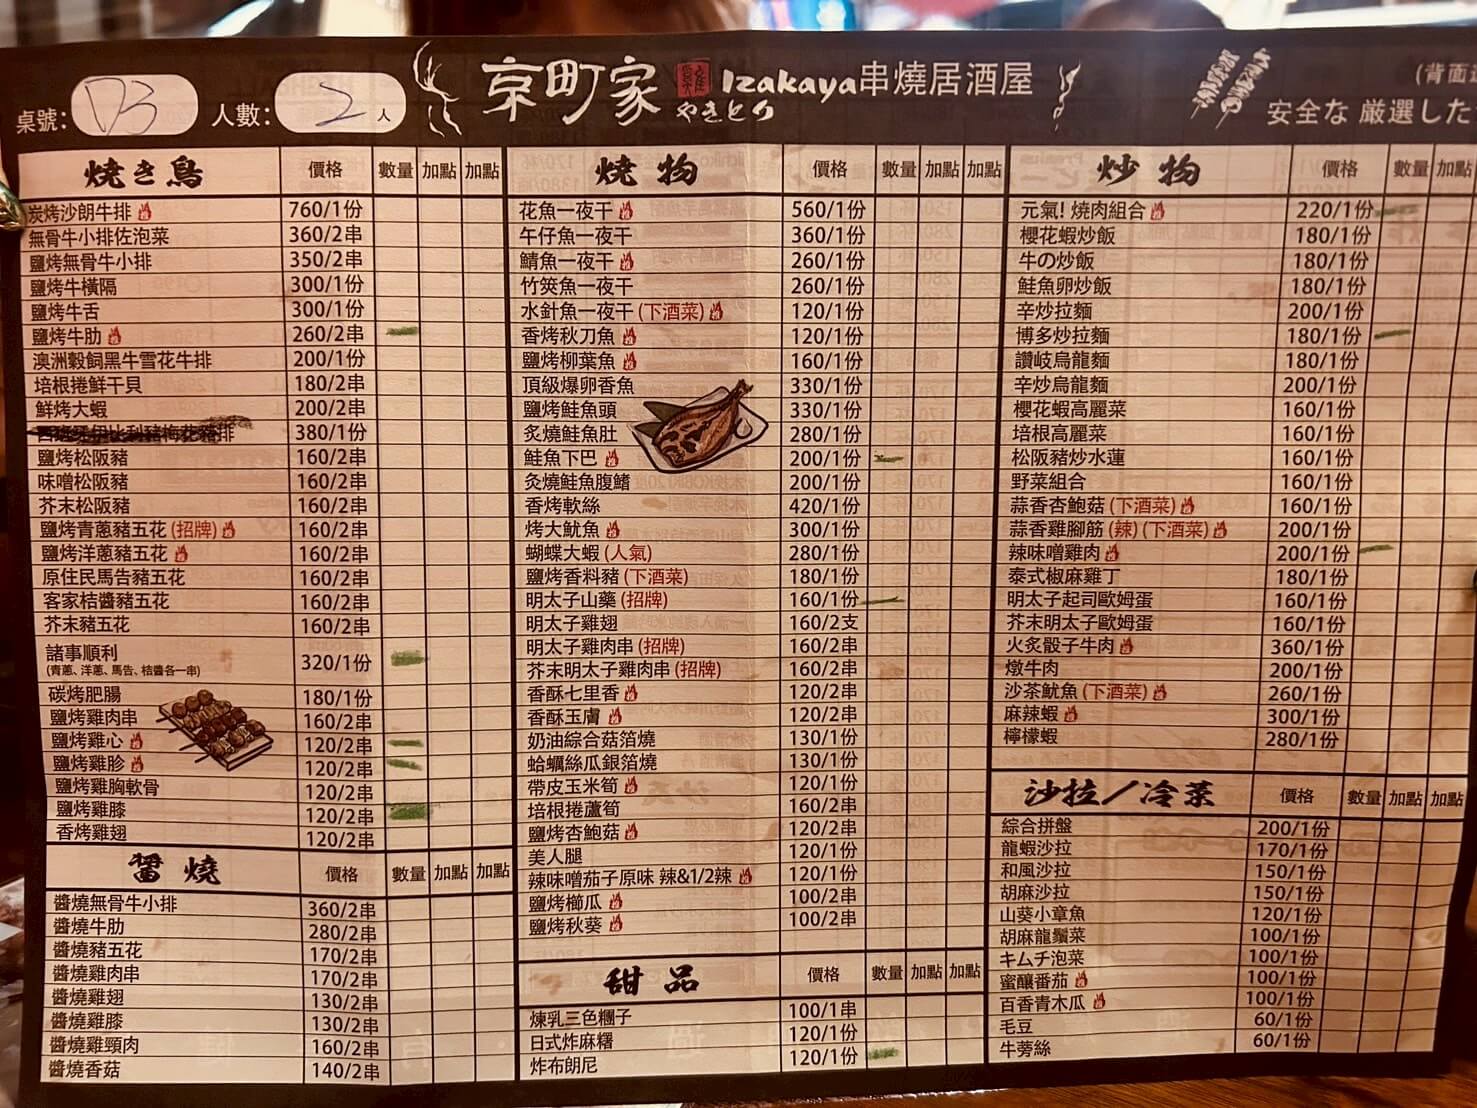 桌號: D3 人數: 2 人
京町家 雞 やきとり Izakaya串燒居酒屋
(背面
安全な 厳選した
焼き鳥 價格 數量 加點 加點
炭烤沙朗牛排 760/1份
無骨牛小排佐泡菜 360/2串
鹽烤無骨牛小排 350/2串
鹽烤牛橫隔 300/1份
鹽烤牛舌 300/1份
鹽烤牛肋 260/2串
澳洲穀飼黑牛雪花牛排 200/1份
培根捲鮮干貝 180/2串
鮮烤大蝦 200/2串
西班牙伊比利豬梅花豬排 380/1份
鹽烤松阪豬 160/2串
味噌松阪豬 160/2串
芥末松阪豬 160/2串
鹽烤青蔥豬五花 (招牌) 160/2串
鹽烤洋蔥豬五花 160/2串
原住民馬告豬五花 160/2串
客家桔醬豬五花 160/2串
芥末豬五花 160/2串
諸事順利 320/1份
(青蔥、洋蔥、馬告、桔醬各一串)
碳烤肥腸 180/1份
鹽烤雞肉串 160/2串
鹽烤雞心 120/2串
鹽烤雞胗 120/2串
鹽烤雞胸軟骨 120/2串
鹽烤雞膝 120/2串
香烤雞翅 120/2串
醤燒 價格 數量 加點 加點
醬燒無骨牛小排 360/2串
醬燒牛肋 280/2串
醬燒豬五花 170/2串
醬燒雞肉串 170/2串
醬燒雞翅 130/2串
醬燒雞膝 130/2串
醬燒雞頸肉 160/2串
醬燒香菇 140/2串
燒物 價格 數量 加點 加點
花魚一夜干 560/1份
午仔魚一夜干 360/1份
鯖魚一夜干 260/1份
竹筴魚一夜干 260/1份
水針魚一夜干 (下酒菜) 120/1份
香烤秋刀魚 120/1份
鹽烤柳葉魚 160/1份
頂級爆卵香魚 330/1份
鹽烤鮭魚頭 330/1份
炙燒鮭魚肚 280/1份
鮭魚下巴 200/1份
灸燒鮭魚腹鰭 200/1份
香烤軟絲 420/1份
烤大魷魚 300/1份
蝴蝶大蝦 (人氣) 280/1份
鹽烤香料豬 (下酒菜) 180/1份
明太子山藥 (招牌) 160/1份
明太子雞翅 160/2支
明太子雞肉串 (招牌) 160/2串
芥末明太子雞肉串 (招牌) 160/2串
香酥七里香 120/2串
香酥玉膚 120/2串
奶油綜合菇箔燒 130/1份
蛤蠣絲瓜銀箔燒 130/1份
帶皮玉米筍 120/1份
培根捲蘆筍 160/2串
鹽烤杏鮑菇 120/2串
美人腿 120/1份
辣味噌茄子原味 辣&1/2辣 120/1份
鹽烤櫛瓜 100/2串
鹽烤秋葵 100/2串
甜品 價格 數量 加點 加點
煉乳三色糰子 100/1串
日式炸麻糬 120/1份
炸布朗尼 120/1份
炒物 價格 數量 加點
元氣! 燒肉組合 220/1份
櫻花蝦炒飯 180/1份
牛の炒飯 180/1份
鮭魚卵炒飯 180/1份
辛炒拉麵 200/1份
博多炒拉麵 180/1份
讚岐烏龍麵 180/1份
辛炒烏龍麵 200/1份
櫻花蝦高麗菜 160/1份
培根高麗菜 160/1份
松阪豬炒水蓮 160/1份
野菜組合 160/1份
蒜香杏鮑菇 (下酒菜) 160/1份
蒜香雞腳筋 (辣) (下酒菜) 200/1份
辣味噌雞肉 200/1份
泰式椒麻雞丁 180/1份
明太子起司歐姆蛋 160/1份
芥末明太子歐姆蛋 160/1份
火炙骰子牛肉 360/1份
燉牛肉 200/1份
沙茶魷魚 (下酒菜) 260/1份
麻辣蝦 300/1份
檸檬蝦 280/1份
沙拉/冷菜 價格 數量 加點 加點
綜合拼盤 200/1份
龍蝦沙拉 170/1份
和風沙拉 150/1份
胡麻沙拉 150/1份
山葵小章魚 120/1份
胡麻龍鬚菜 100/1份
キムチ泡菜 100/1份
蜜釀番茄 100/1份
百香青木瓜 100/1份
毛豆 60/1份
牛蒡絲 60/1份